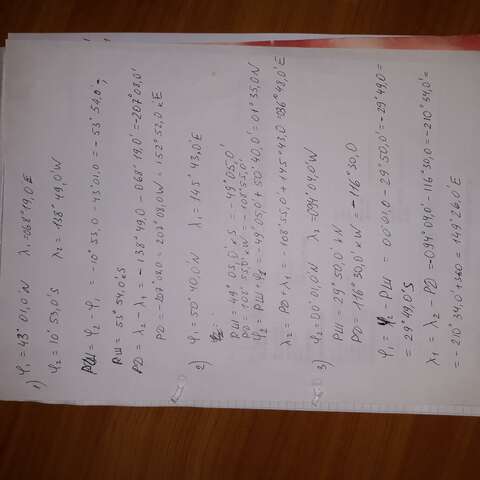 1) φ₁ = 43° 01,0 N λ₁ = 068° 19,0 E
φ₂ = 10° 53,0 S λ₂ = 138° 49,0 W
РШ = φ₂ - φ₁ = -10° 53,0 - 43° 01,0 = -53° 54,0';
РШ = 53° 54,0'S
РД = λ₂ - λ₁ = -138° 49,0 - 068° 19,0' = -207° 08,0'
РД = -207° 08,0 = 207° 08,0 W = 152° 52,0 к E
2) φ₁ = 50° 40,0 N λ₁ = 145° 43,0' E
φ₂ -
РШ = 49° 05,0' к S = -49° 05,0'
РД = 108° 55,0' к W = -108° 55,0'
φ₂ = РШ + φ₂ = -49° 05,0 + 50° 40,0' = 01° 35,0 N
λ₂ = РД + λ₁ = -108° 55,0' + 145° 43,0 = 036° 48,0' E
3) φ₂ = 00° 01,0 N λ₂ = 094° 04,0' W
РШ = 29° 50,0' к N
РД = 116° 30,0' к W = -116° 30,0
φ₁ = φ₂ РШ = 00° 01,0 - 29° 50,0' = -29° 49,0 =
= 29° 49,0'S
λ₁ = λ₂ - РД = -094° 04,0' - 116° 30,0 = -210° 34,0' =
= -210° 34,0' + 360 = 149° 26,0' E